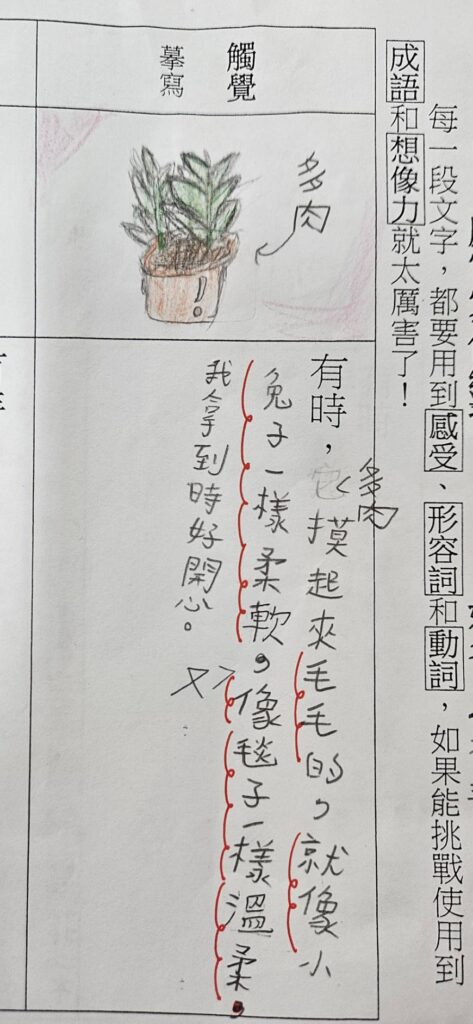 每一段文字，都要用到感受、形容詞和動詞，如果能挑戰使用到
成語和想像力就太厲害了！
觸覺
摹寫
多肉
有時，多肉摸起來毛毛的，就像小
兔子一樣柔軟，又像毯子一樣溫柔。
我拿到時好開心。